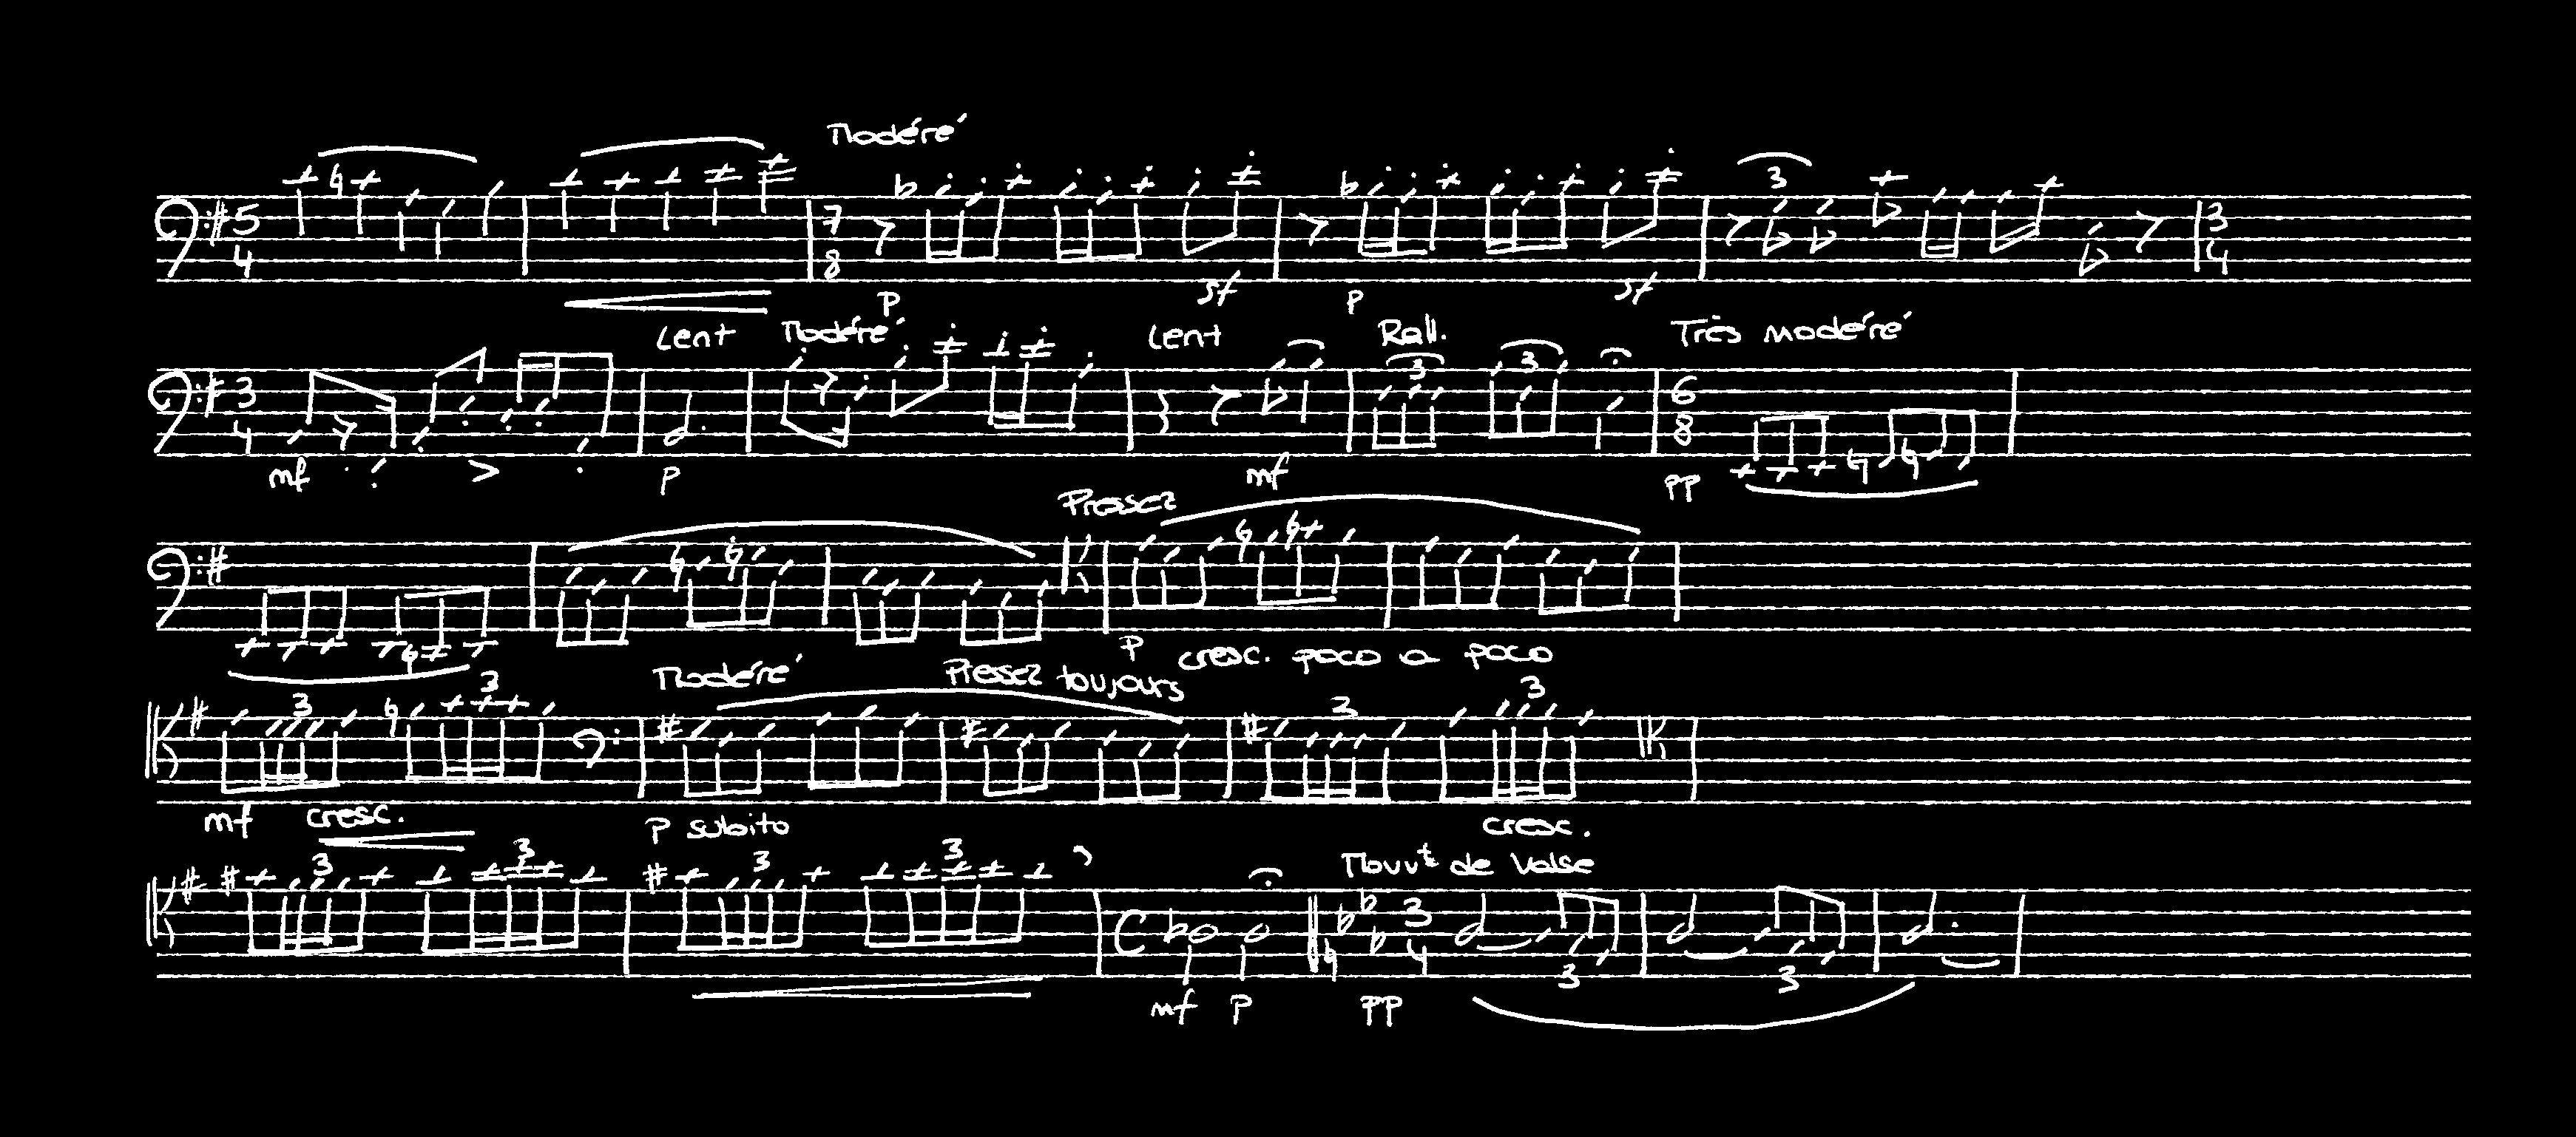 Modéré
3
5 4 7 8 3 4
p sf p sf
Lent Modéré Lent Rall. Très modéré
3 3
3 4 6 8
mf p mf pp
Pressez
p cresc. poco a poco
Modéré Pressez toujours
3 3 3 3
mf cresc. p subito cresc.
Mouvt de Valse
3 3 3 3
3 4
3 3
mf p pp